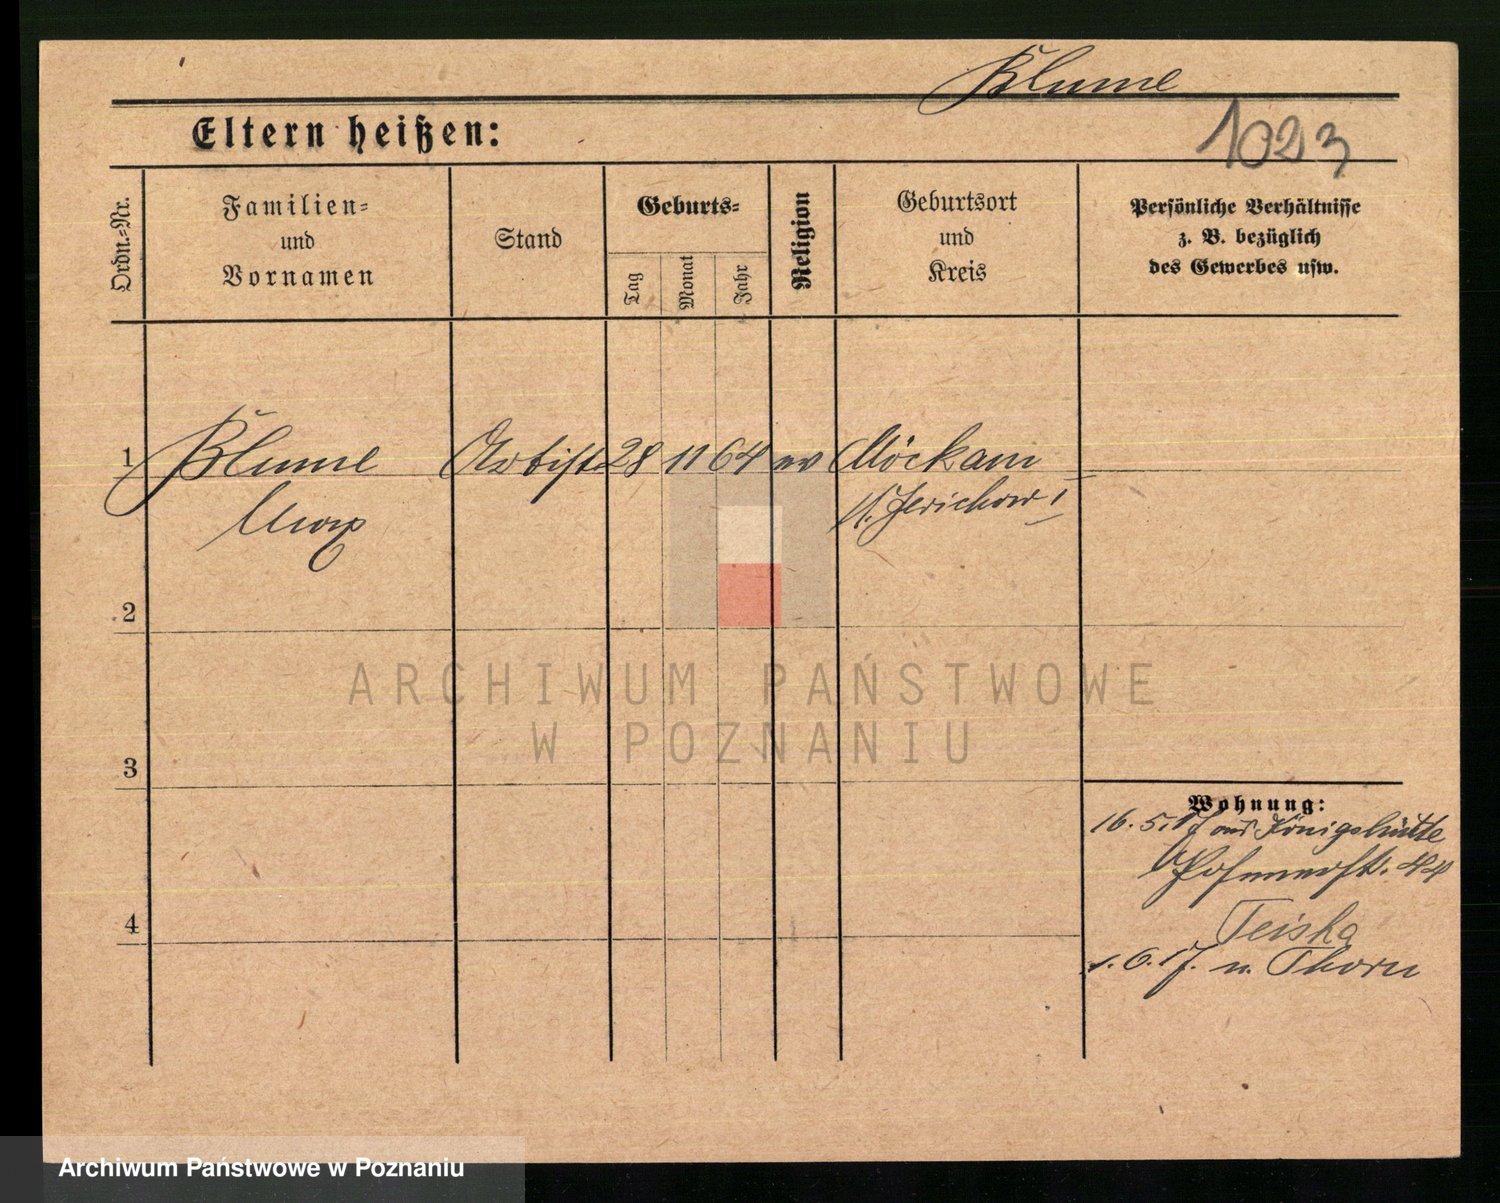 Blume
1023
Eltern heißen:
Ordn.-Nr.
Familien-
und
Vornamen
Stand
Geburts-
Tag
Monat
Jahr
Religion
Geburtsort
und
Kreis
Persönliche Verhältnisse
z. B. bezüglich
des Gewerbes usw.
1 Blume Artist 28 11 64 ev Möckern
Max K. Jerichow I
2
3
4
Wohnung:
16.5.17 aus Königshütte
Posenerstr. 44
Teiska
1.6.17. n. Thorn
ARCHIWUM PAŃSTWOWE
W POZNANIU
Archiwum Państwowe w Poznaniu